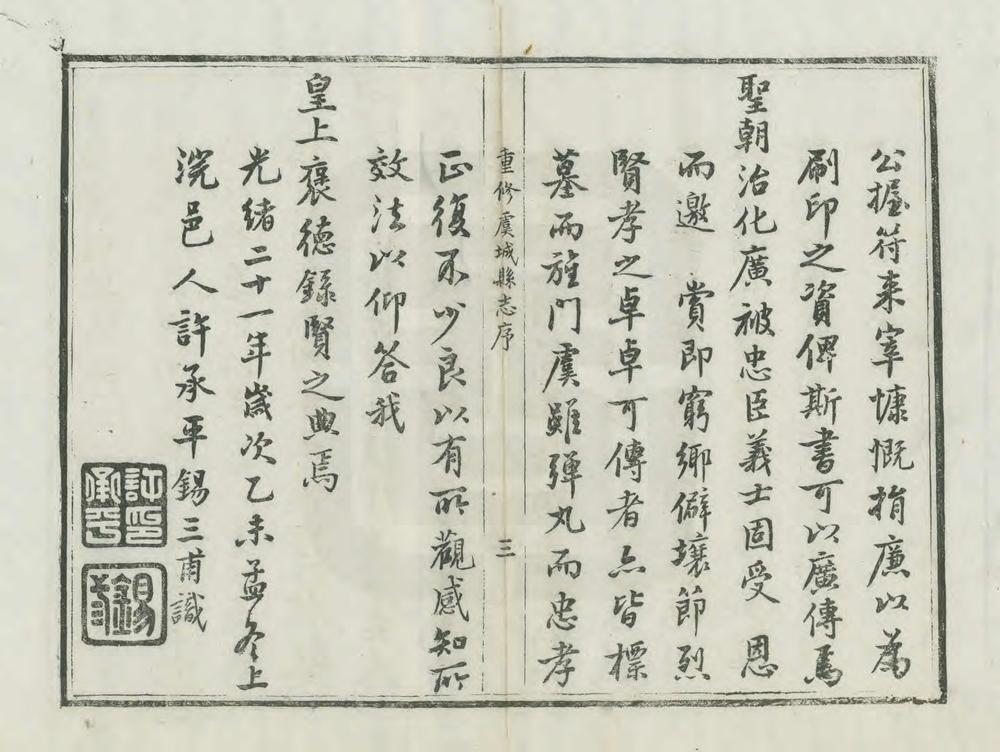 公握符来宰慷慨捐廉以為
刷印之資俾斯書可以廣傳焉
聖朝治化廣被忠臣義士固受 恩
而邀 賞即窮鄉僻壤節烈
賢孝之卓卓可傳者亦皆標
墓而旌門虞雖彈丸而忠孝
重修虞城縣志序 三
正復不少良以有所觀感知所
效法以仰答我
皇上褒德錄賢之典焉
光緒二十一年歲次乙未孟冬上
浣邑人許承平錫三甫識
許承平印
錫三